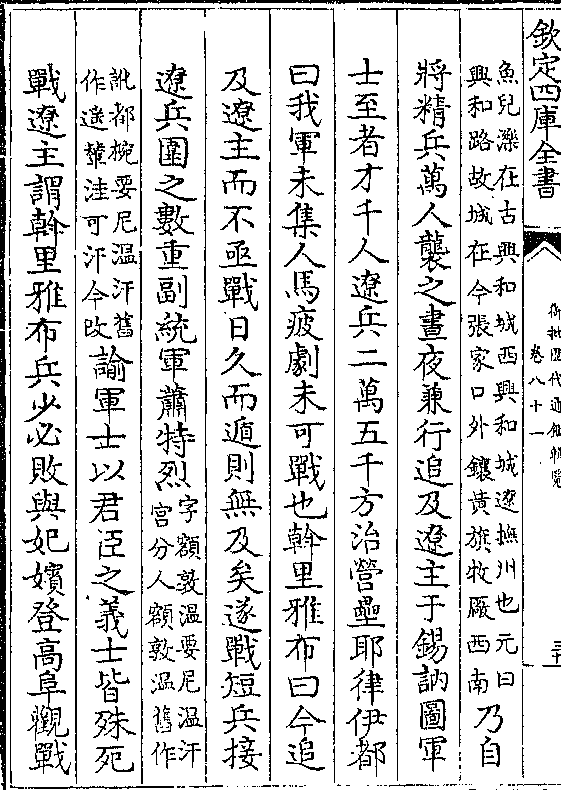 欽定四庫全書
御批歷代通鑑輯覽
卷八十一
魚兒濼在古興和城西興和城遼撫州也元曰
興和路故城在今張家口外鑲黃旗牧厰西南
乃自
將精兵萬人襲之晝夜兼行追及遼主于錫訥圖軍
士至者才千人遼兵二萬五千方治營壘耶律伊都
曰我軍未集人馬疲劇未可戰也斡里雅布曰今追
及遼主而不亟戰日久而遁則無及矣遂戰短兵接
遼兵圍之數重副統軍蕭特烈
字額敦温要尼温汗
宫分人額敦温舊作
訛都椀要尼温汗舊
作遥輦洼可汗今改
諭軍士以君臣之義士皆殊死
戰遼主謂斡里雅布兵少必敗與妃嬪登高阜觀戰